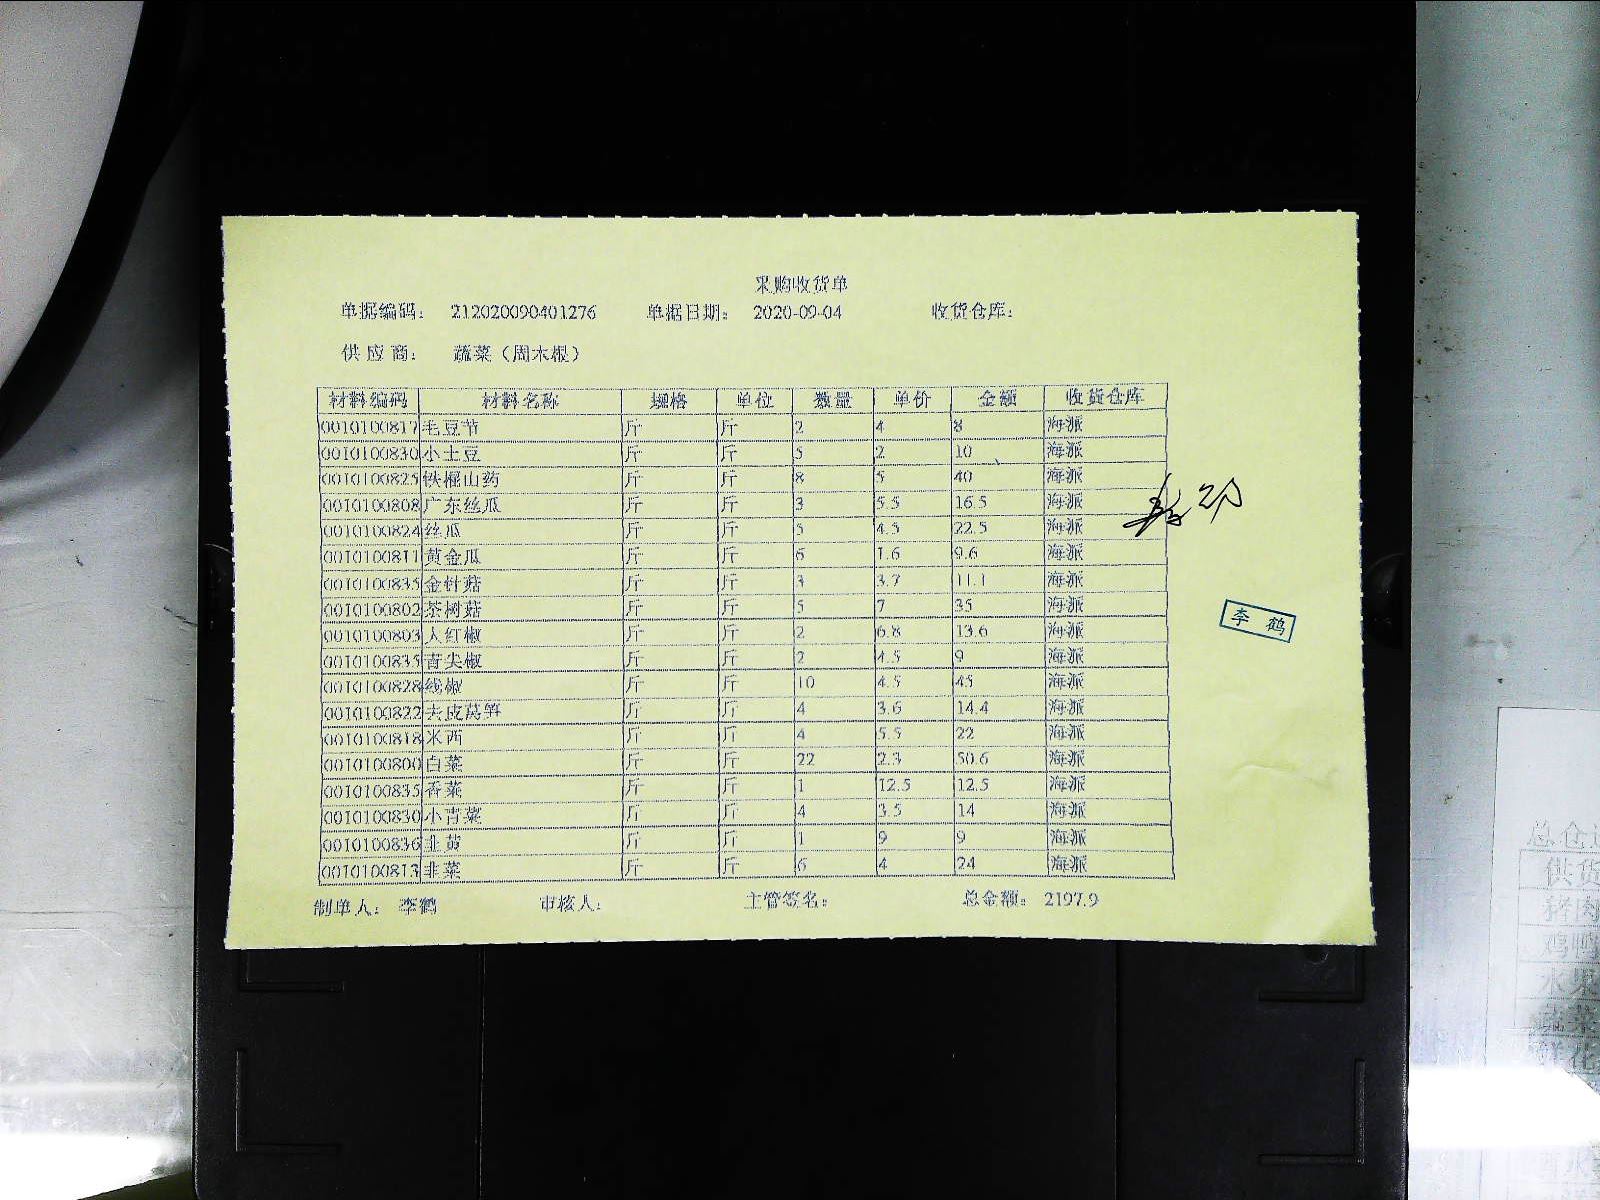 采购收货单
单据编码： 212020090401276 单据日期： 2020-09-04 收货仓库：
供应商： 蔬菜（周木根）
材料编码 材料名称 规格 单位 数量 单价 金额 收货仓库
0010100817 毛豆节 斤 斤 2 4 8 海派
0010100830 小土豆 斤 斤 5 2 10 海派
0010100825 铁棍山药 斤 斤 8 5 40 海派
0010100808 广东丝瓜 斤 斤 3 5.5 16.5 海派
0010100824 丝瓜 斤 斤 5 4.5 22.5 海派
0010100811 黄金瓜 斤 斤 6 1.6 9.6 海派
0010100835 金针菇 斤 斤 3 3.7 11.1 海派
0010100802 茶树菇 斤 斤 5 7 35 海派
0010100803 人红椒 斤 斤 2 6.8 13.6 海派
0010100835 青尖椒 斤 斤 2 4.5 9 海派
0010100828 线椒 斤 斤 10 4.5 45 海派
0010100822 去皮莴笋 斤 斤 4 3.6 14.4 海派
0010100818 米西 斤 斤 4 5.5 22 海派
0010100800 白菜 斤 斤 22 2.3 50.6 海派
0010100835 香菜 斤 斤 1 12.5 12.5 海派
0010100830 小青菜 斤 斤 4 3.5 14 海派
0010100836 韭黄 斤 斤 1 9 9 海派
0010100813 韭菜 斤 斤 6 4 24 海派
制单人： 李鹤 审核人： 主管签名： 总金额： 2197.9
李鹤
总仓
供货
猪肉
鸡鸭
水果
蔬菜
鲜花